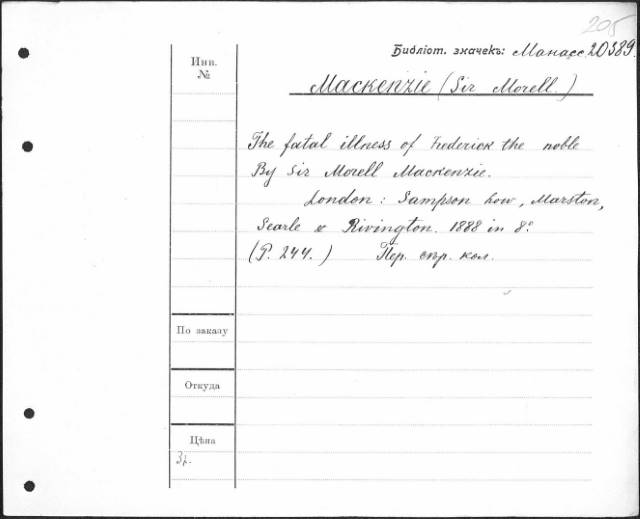 205
Библіот. значекъ: Манасс. 20389.
Инв.
№
Mackenzie (Sir Morell.)
The fatal illness of Frederick the noble
By Sir Morell Mackenzie.
London: Sampson Low, Marston,
Searle & Rivington. 1888 in 8°.
(P. 244.) Пер. сѣр. кол.
По заказу
Откуда
Цѣна
3р.